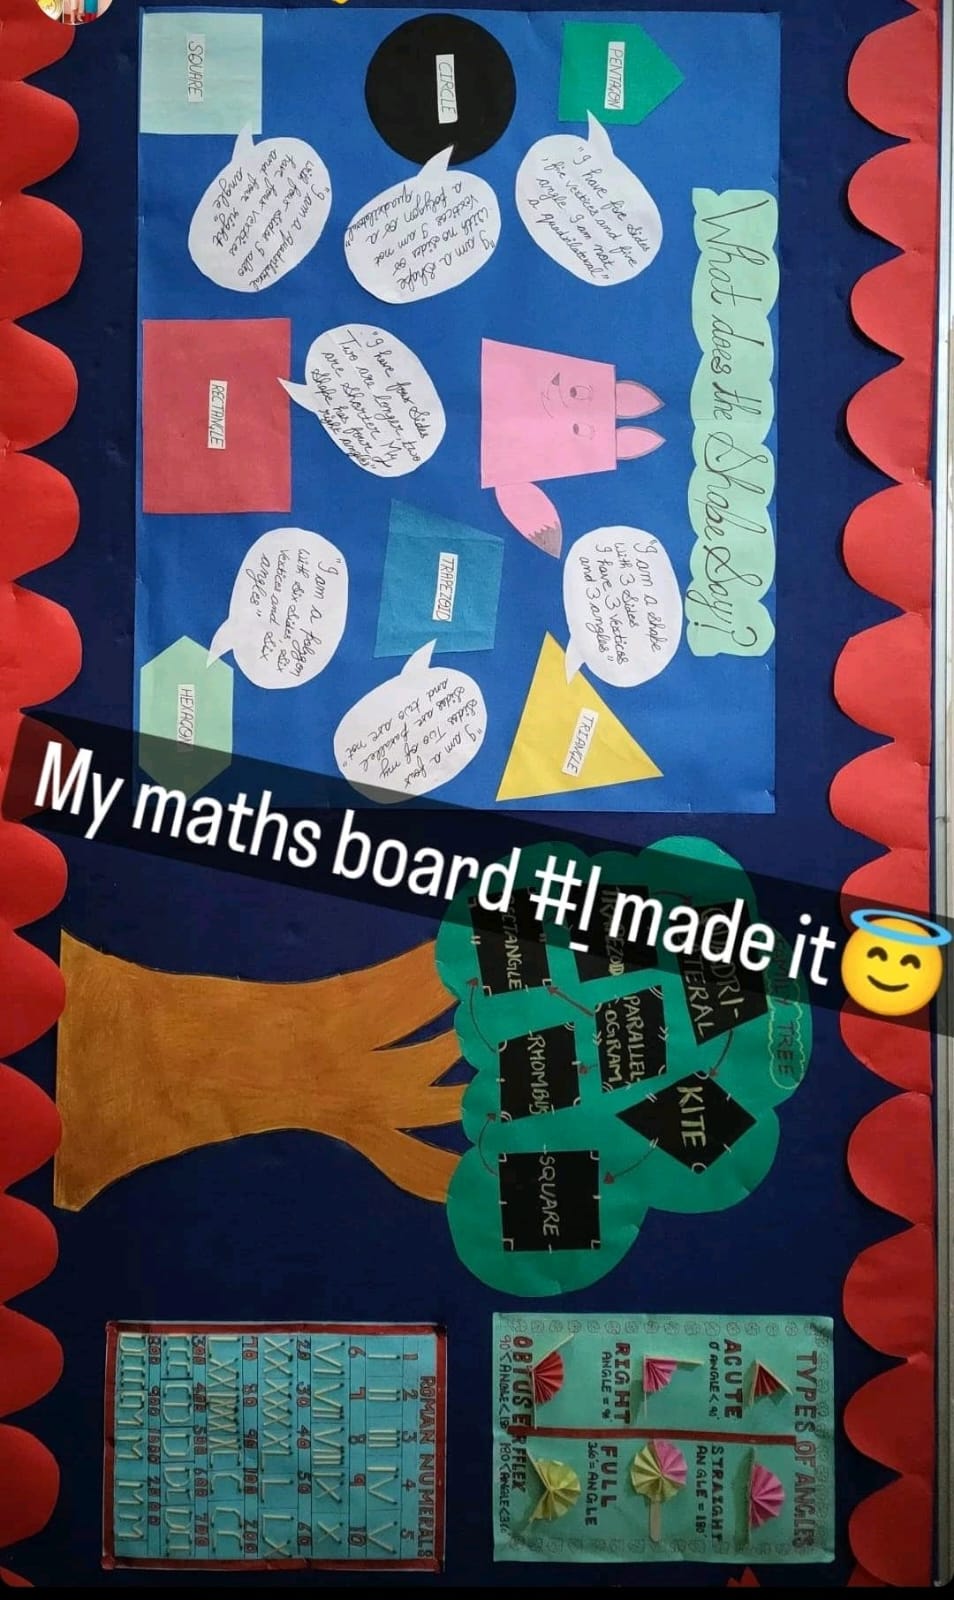 What does the Shape Say?
PENTAGON
"I have five sides
five vertices and five
angle. I am not
a quadrilateral"
"I am a shape
with 3 sides
I have 3 vertices
and 3 angles"
TRIANGLE
CIRCLE
"I am a shape
with no sides or
vertices I am not
a polygon or a
quadrilateral"
"I have four sides
Two are longer, two
are shorter My
shape has four
right angles"
TRAPEZOID
"I am a four
sides Two of my
sides are parallel
and two are not"
"I am a quadrilateral
with four sides I also
have four vertices
and four right
angle"
SQUARE
RECTANGLE
"I am a polygon
with six sides, six
vertices and six
angles"
HEXAGON
My maths board #I_made it
FAMILY TREE
QUADRI-
LATERAL
KITE
TRAPEZOID
PARALLEL-
OGRAM
RECTANGLE
RHOMBUS
SQUARE
TYPES OF ANGLES
ACUTE
0°ANGLE<90°
STRAIGHT
ANGLE = 180°
RIGHT
ANGLE = 90°
FULL
360°=ANGLE
OBTUSE
90°<ANGLE<180°
RFFLEX
180°<ANGLE<360°
ROMAN NUMERALS
1 2 3 4 5
I II III IV V
6 7 8 9 10
VI VII VIII IX X
20 30 40 50 60
XX XXX XL L LX
70 80 90 100 200
LXX LXXX XC C CC
300 400 500 600 700
CCC CD D DC DCC
800 900 1000 2000
DCCC CM M MM